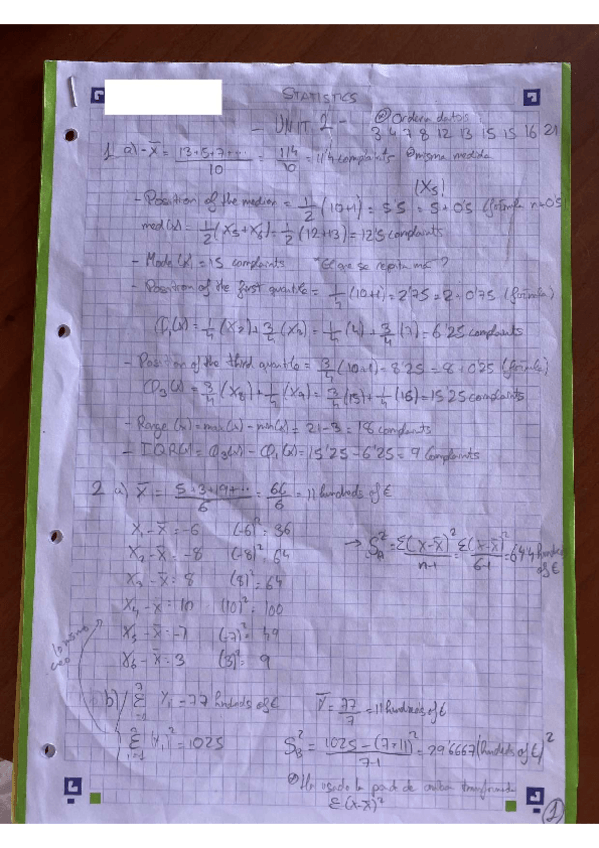 STATISTICS
- UNIT 2 -
② Ordena datos
3 4 7 8 12 13 15 15 16 21
1 a) - x̄ = (13+5+7+...)/10 = 114/10 = 11'4 complaints misma medida
|X5|
- Position of the median = 1/2 (10+1) = 5'5 = 5+0'5 (formula n+0'5)
med(x) = 1/2 (X5+X6) = 1/2 (12+13) = 12'5 complaints
- Mode(x) = 15 complaints *El que se repita más?
- Position of the first quantile = 1/4 (10+1) = 2'75 = 2 + 0'75 (formula)
Q1(x) = 1/4 (X2) + 3/4 (X3) = 1/4 (4) + 3/4 (7) = 6'25 complaints
- Position of the third quantile = 3/4 (10+1) = 8'25 = 8 + 0'25 (formula)
Q3(x) = 3/4 (X8) + 1/4 (X9) = 3/4 (15) + 1/4 (16) = 15'25 complaints
- Range (x) = max(x) - min(x) = 21-3 = 18 complaints
- IQR(x) = Q3(x) - Q1(x) = 15'25 - 6'25 = 9 Complaints
2 a) x̄ = (5+3+19+...)/6 = 66/6 = 11 hundreds of €
X1 - x̄ = -6 (-6)² = 36
X2 - x̄ = -8 (-8)² = 64
→ S²A = Σ(x-x̄)²/n-1 = Σ(x-x̄)²/6-1 = 64'4 hundreds of €
X3 - x̄ = 8 (8)² = 64
X4 - x̄ = 10 (10)² = 100
X5 - x̄ = -7 (-7)² = 49
X6 - x̄ = 3 (3)² = 9
b) Σ Yi = 77 hundreds of € Ȳ = 77/7 = 11 hundreds of €
Σ (Yi)² = 1025 S²B = 1025 - (7×11)²/7-1 = 29'6667 (hundreds of €)²
Σ(x-x̄)²
1